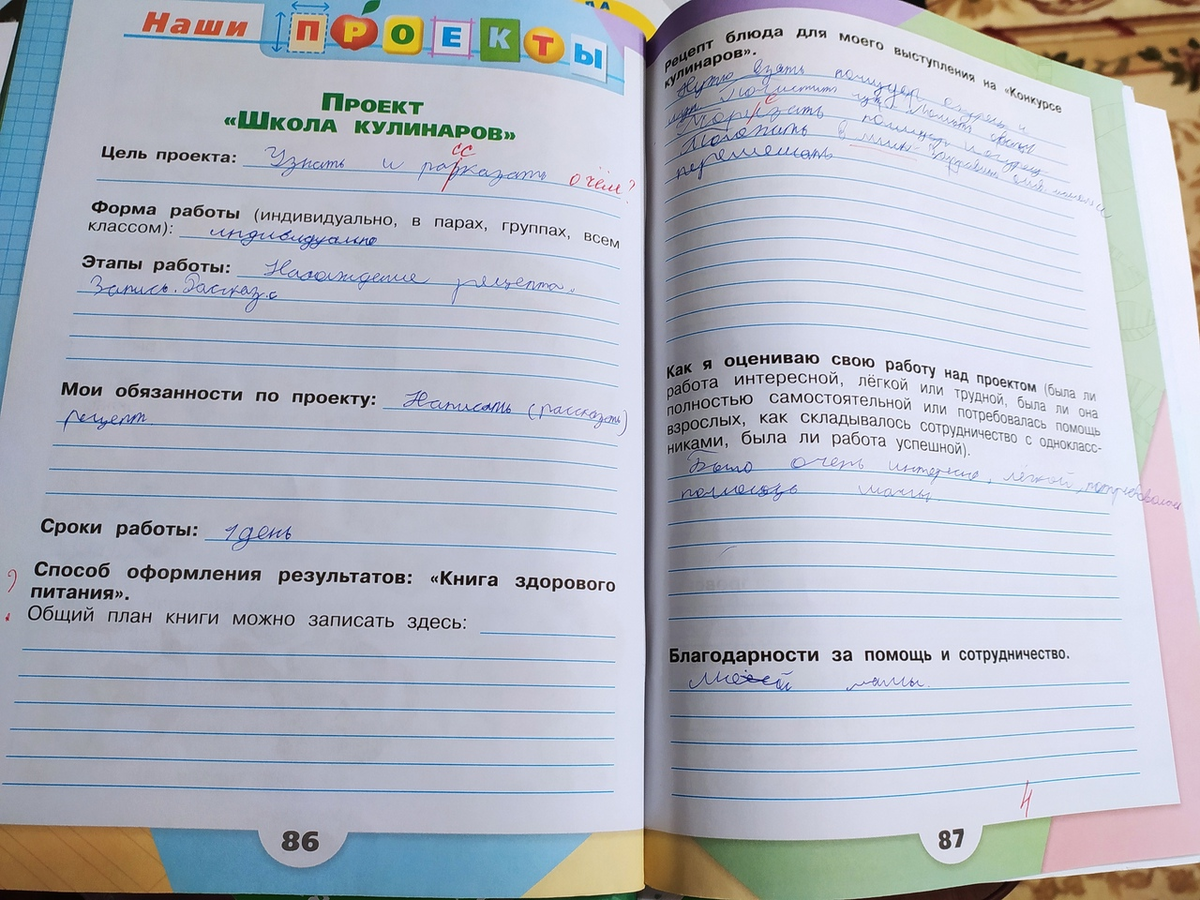 Наши ПРОЕКТЫ
ПРОЕКТ
«ШКОЛА КУЛИНАРОВ»
сс
Цель проекта: Узнать и разказать о чём?
Форма работы (индивидуально, в парах, группах, всем
классом): индивидуально
Этапы работы: Нахождение рецепта.
Запись. Рассказ.
Мои обязанности по проекту: Написать (рассказать)
рецепт
Сроки работы: 1 день
? Способ оформления результатов: «Книга здорового
питания».
Общий план книги можно записать здесь:
86
Рецепт блюда для моего выступления на «Конкурсе
кулинаров».
Нужно взять помидор огурец и
лук. Почистить лук
с
Порезать помидор огурец
Положить в
перемешать
Как я оцениваю свою работу над проектом (была ли
работа интересной, лёгкой или трудной, была ли она
полностью самостоятельной или потребовалась помощь
взрослых, как складывалось сотрудничество с однокласс-
никами, была ли работа успешной).
Было очень интересно, лёгкой, потребовалась
помощь мамы.
Благодарности за помощь и сотрудничество.
Моей мамы.
4
87